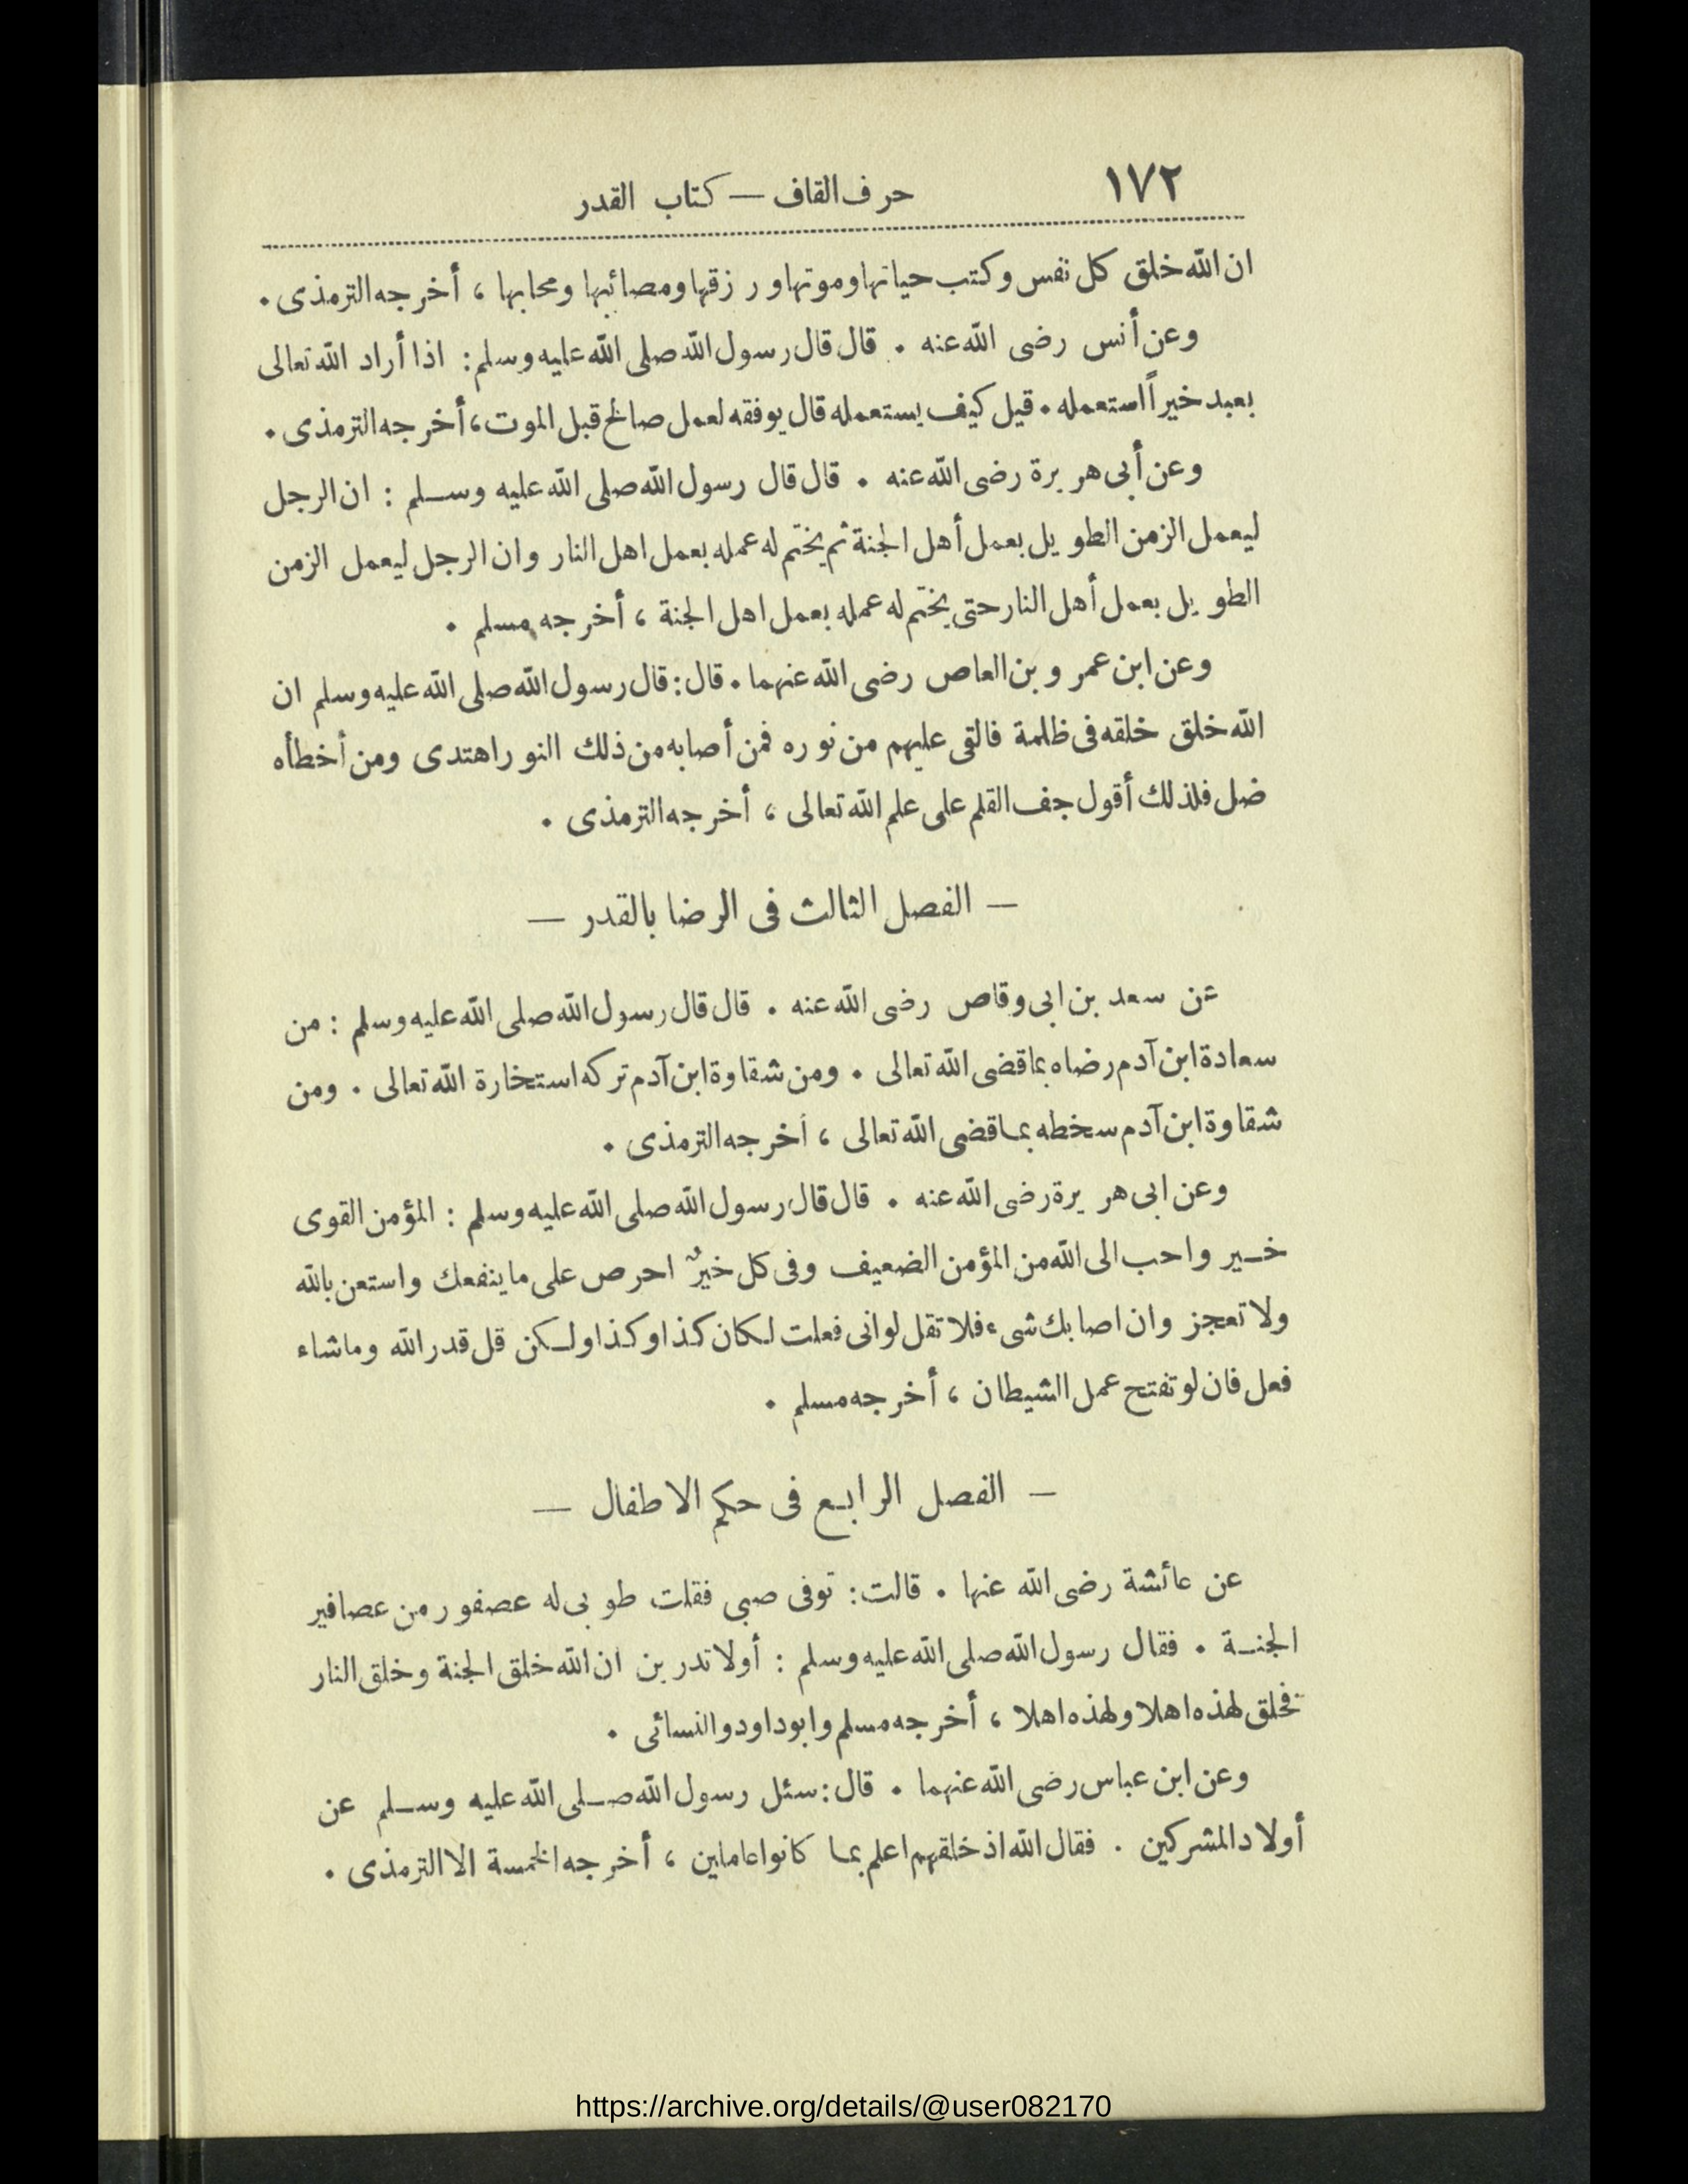 ١٧٢
حرف القاف — كتاب القدر
ان الله خلق كل نفس وكتب حياتها وموتها ورزقها ومصائبها ومحابها ، أخرجه الترمذى .
وعن أنس رضى الله عنه . قال قال رسول الله صلى الله عليه وسلم : اذا أراد الله تعالى
بعبد خيراً استعمله . قيل كيف يستعمله قال يوفقه لعمل صالح قبل الموت ، أخرجه الترمذى .
وعن أبى هريرة رضى الله عنه . قال قال رسول الله صلى الله عليه وسلم : ان الرجل
ليعمل الزمن الطويل بعمل أهل الجنة ثم يختم له عمله بعمل اهل النار وان الرجل ليعمل الزمن
الطويل بعمل أهل النار حتى يختم له عمله بعمل اهل الجنة ، أخرجه مسلم .
وعن ابن عمرو بن العاص رضى الله عنهما . قال : قال رسول الله صلى الله عليه وسلم ان
الله خلق خلقه فى ظلمة فالقى عليهم من نوره فمن أصابه من ذلك النور اهتدى ومن أخطأه
ضل فلذلك أقول جف القلم على علم الله تعالى ، أخرجه الترمذى .
— الفصل الثالث فى الرضا بالقدر —
عن سعد بن ابى وقاص رضى الله عنه . قال قال رسول الله صلى الله عليه وسلم : من
سعادة ابن آدم رضاه بما قضى الله تعالى . ومن شقاوة ابن آدم تركه استخارة الله تعالى . ومن
شقاوة ابن آدم سخطه بما قضى الله تعالى ، أخرجه الترمذى .
وعن ابى هريرة رضى الله عنه . قال قال رسول الله صلى الله عليه وسلم : المؤمن القوى
خير واحب الى الله من المؤمن الضعيف وفى كل خيرٌ احرص على ما ينفعك واستعن بالله
ولا تعجز وان اصابك شىء فلا تقل لو انى فعلت لكان كذا وكذا ولكن قل قدر الله وما شاء
فعل فان لو تفتح عمل الشيطان ، أخرجه مسلم .
— الفصل الرابع فى حكم الاطفال —
عن عائشة رضى الله عنها . قالت : توفى صبى فقلت طوبى له عصفور من عصافير
الجنة . فقال رسول الله صلى الله عليه وسلم : أولا تدرين ان الله خلق الجنة وخلق النار
فخلق لهذه اهلا ولهذه اهلا ، أخرجه مسلم وابوداود والنسائى .
وعن ابن عباس رضى الله عنهما . قال : سئل رسول الله صلى الله عليه وسلم عن
أولاد المشركين . فقال الله اذ خلقهم اعلم بما كانوا عاملين ، أخرجه الخمسة الا الترمذى .
https://archive.org/details/@user082170